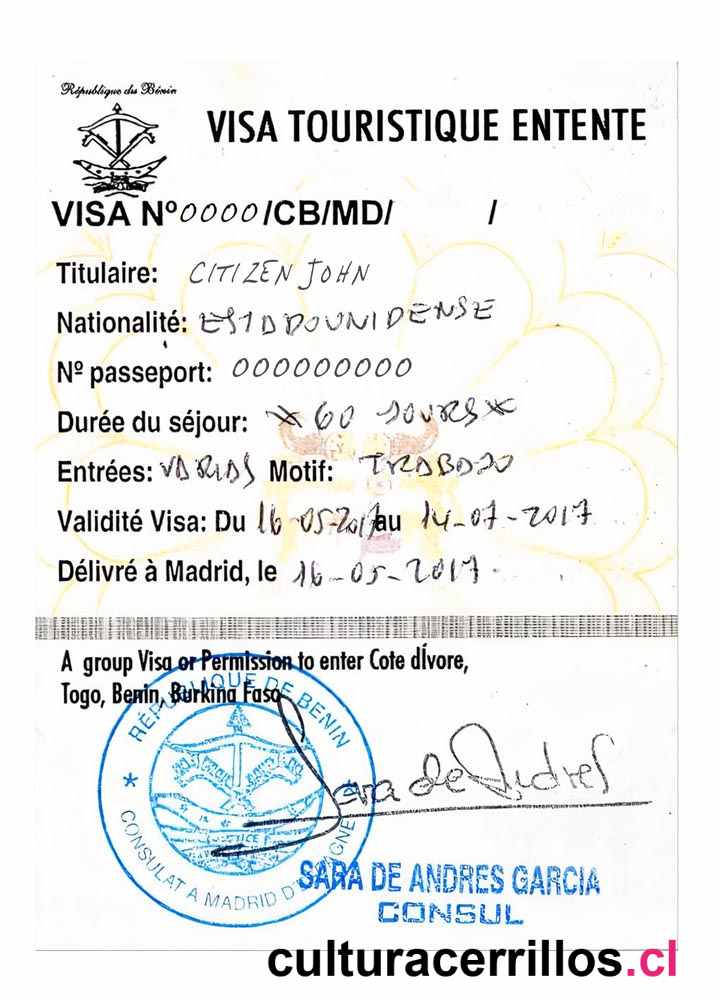 République du Bénin
VISA TOURISTIQUE ENTENTE
VISA Nº0000/CB/MD/ /
Titulaire: CITIZEN JOHN
Nationalité: ESTADOUNIDENSE
Nº passeport: 000000000
Durée du séjour: * 60 JOURS *
Entrées: VARIAS Motif: TRABAJO
Validité Visa: Du 16-05-2017 au 14-07-2017
Délivré à Madrid, le 16-05-2017.
A group Visa or Permission to enter Cote dÍvore,
Togo, Benin, Burkina Faso
RÉPUBLIQUE DE BENIN
CONSULAT A MADRID D'ESPAGNE
Sara de Andres
SARA DE ANDRES GARCIA
CONSUL
culturacerrillos.cl